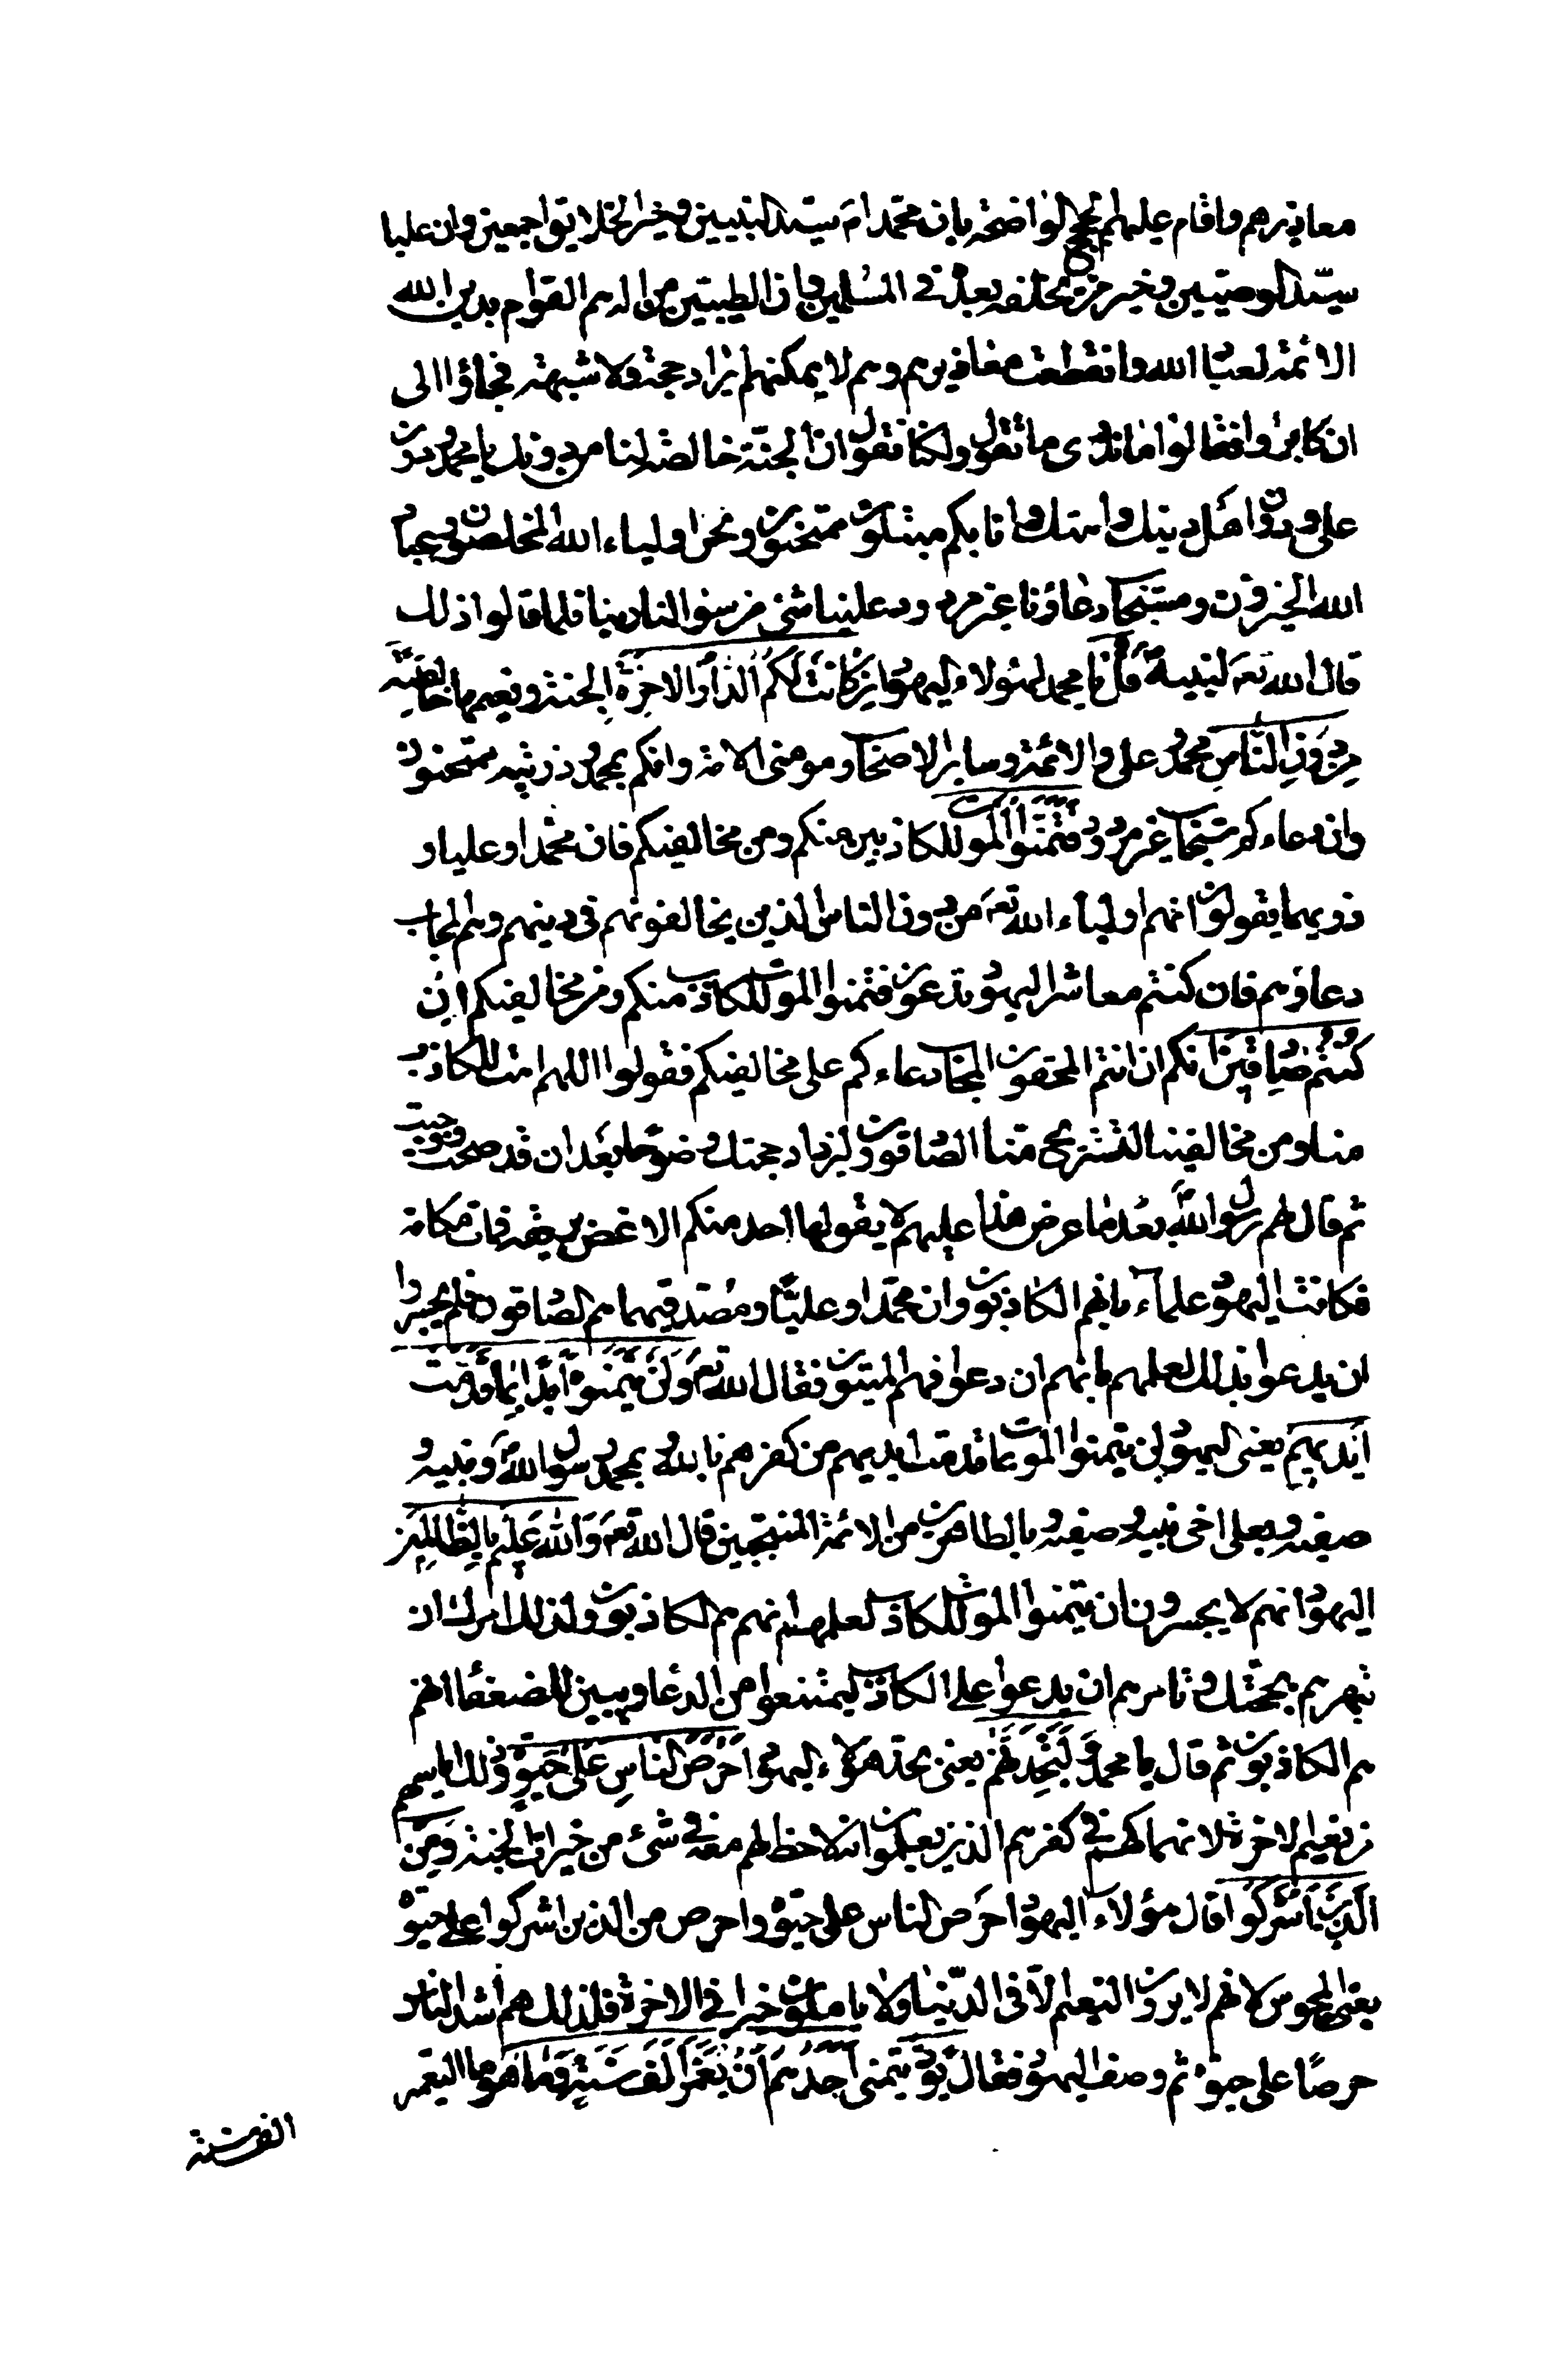 معاذيرهم واقام عليهم الحجج الواضحة بان محمدا ص سيد النبيين وخير الخلايق اجمعين وان عليا
سيد الوصيين وخير من يخلفه بعده في المسلمين وان الطيبين من اله هم القوام بدين الله
الائمة لعباد الله وانقطعت معاذيرهم وهم لا يمكنهم ايراد حجة ولا شبهة فجاؤا الى
ان كابروا فقالوا ما ندرى ما تقول ولكنا نقول ان الجنة خالصة لنا من دونك يا محمد ودون
على ودون اهل دينك وامتك وانا بكم مبتلون ممتحنون ونحن اولياء الله المخلصون وعباد
الله الخيرون ومستجاب دعاؤنا غير مردود علينا شئ من سؤالنا ربنا فلما قالوا ذلك
قال الله تعه لنبيه ص قُلْ يا محمد لهؤلاء اليهود اِن كَانَتْ لَكُمُ الدَّارُ الاخِرَةُ الجنة ونعيمها خَالِصَةً
مِن دُونِ النَّاسِ محمد وعلى والائمة وساير الاصحاب ومومنى الامة وانكم بمحمد وذريته ممتحنون
وان دعاءكم مستجاب غير مردود فَتَمَنَّوُا الْمَوتَ للكاذبين منكم ومن مخالفيكم فان محمدا وعليا و
ذويهما يقولون انهم اولياء الله تعه من دون الناس الذين يخالفونهم فى دينهم وهم المجاب
دعاؤهم فان كنتم معاشر اليهود تدعون فتمنوا الموت للكاذب منكم ومن مخالفيكم اِن
كُنتُم صَادِقِينَ انكم ان انتم المحقون المجاب دعاءكم على مخالفيكم فقولوا اللهم امت الكاذب
منا ومن مخالفينا لتستريح منا الصادقون وليزداد حجتك وضوحا بعد ان قد صحت ووجبت
ثم قال لهم رسول الله ص بعد ما عرض هذا عليهم لا يقولها احد منكم الا غض بريقه فمات مكانه
فكانت اليهود علماء بانهم الكاذبون وان محمدا وعليا ومصدقيهما هم الصادقون فلم يجسروا
ان يدعوا بذلك لعلمهم بانهم ان دعوا فهم الميتون فقال الله تعه وَلَن يَتَمَنَّوهُ اَبَدًا بِمَا قَدَّمَت
اَيْدِيهِم يعنى اليهود لن يتمنوا الموت بما قدمت ايديهم من كفرهم بالله وبمحمد رسول الله ص ونبيه و
صفيه وبعلى اخى نبيه وصفيه وبالطاهرين من الائمة المنتجبين قال الله تعه وَاللهُ عَلِيمٌ بِالظَّالِمِينَ
اليهود انهم لا يجسرون ان يتمنوا الموت للكاذب لعلمهم انهم هم الكاذبون ولذلك امرك ان
تبهرهم بحجتك وتامرهم ان يدعوا على الكاذب ليمتنعوا من الدعا ويبين للضعفا انهم
هم الكاذبون ثم قال يا محمد وَ لَتَجِدَنَّهُم يعنى تجد هؤلاء اليهود اَحْرَصَ النَّاسِ عَلَى حَيوةٍ وذلك لياسهم
من نعيم الاخرة لانهماكهم في كفرهم الذين يعلمون انه لا حظ لهم معه في شئ من خيرات الجنة وَمِنَ
الَّذِينَ اَشْرَكُوا قال هؤلاء اليهود احرص الناس على حيوة واحرص من الذين اشركوا على حيوة
يعنى المجوس لانهم لا يرون النعيم الا فى الدنيا ولا ياملون خيرا فى الاخرة فلذلك هم اشد الناس
حرصا على حيوة ثم وصف اليهود فقال يَوَدُّ يتمنى اَحَدُهُم اَن يُعَمَّرُ اَلفَ سَنَةٍ وَمَا هُوَ ما التعمير
الف سنة